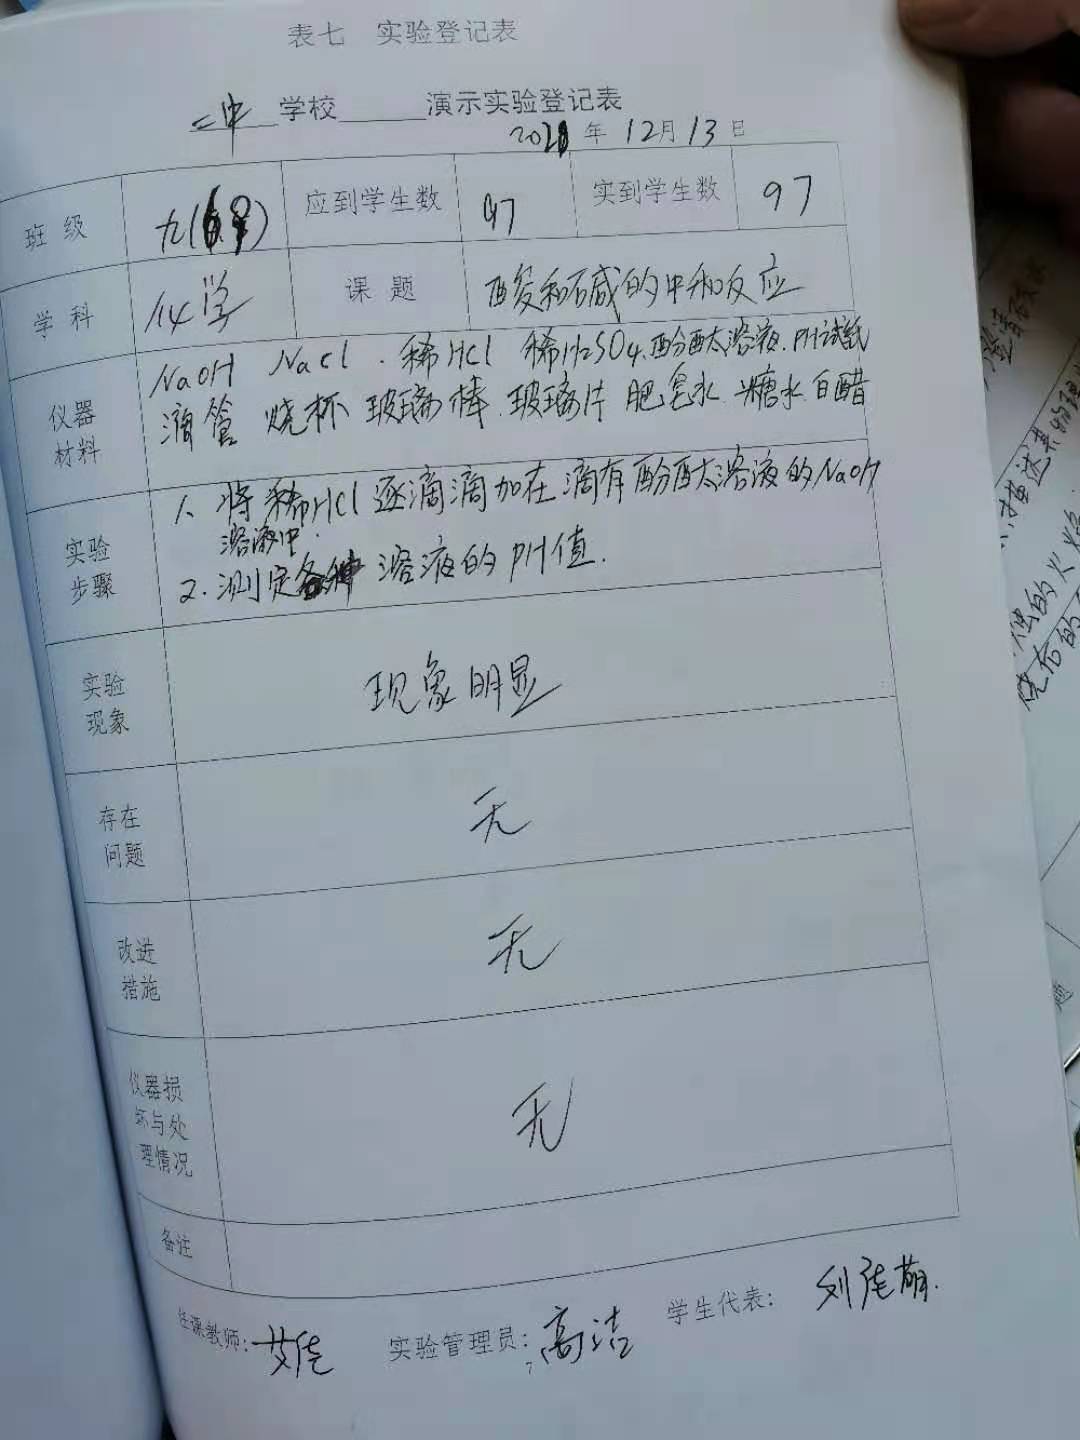 表七 实验登记表
二中 学校 演示实验登记表
2021 年 12 月 13 日
班级 九( 应到学生数 97 实到学生数 97
学科 化学 课题 酸和碱的中和反应
仪器材料
NaOH NaCl . 稀HCl 稀H2SO4.酚酞溶液.PH试纸
滴管 烧杯 玻璃棒.玻璃片 肥皂水 糖水 白醋
实验步骤
1. 将稀HCl逐滴滴加在滴有酚酞溶液的NaOH
溶液中.
2. 测定各种溶液的PH值.
实验现象
现象明显
存在问题
无
改进措施
无
仪器损坏与处理情况
无
备注
任课教师: 艾佳 实验管理员: 高洁 学生代表: 刘萌.
7